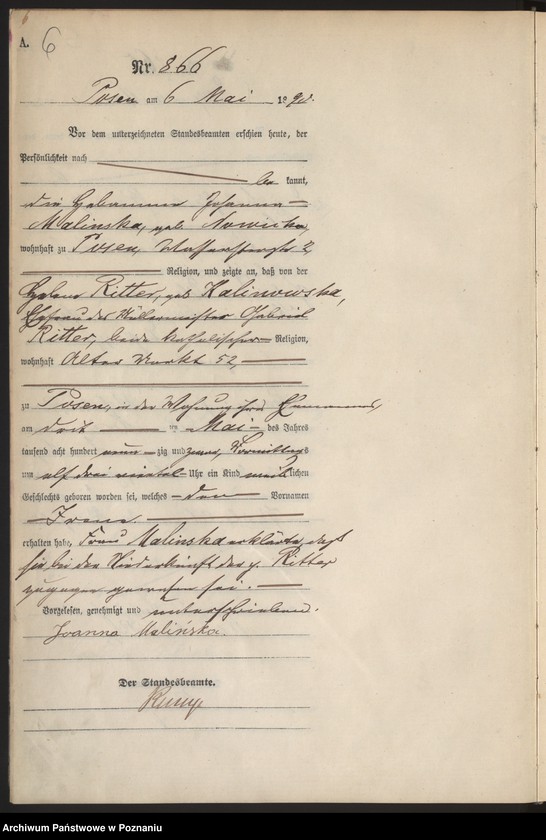 A. 6
Nr. 866
Posen am 6 Mai 18
Vor dem unterzeichneten Standesbeamten erschien heute, der
Persönlichkeit nach
be kannt,
die Hebamme Johanna
Malinska, geb. Nowicka,
wohnhaft zu Posen, Wasserstraße 2,
Religion, und zeigte an, daß von der
Helene Ritter, geb. Kalinowska,
Ehefrau des Gabriel
Ritter, beide katholischer Religion,
wohnhaft Alter Markt 52,
zu Posen, in der Wohnung ihres Ehemannes,
am dritten Mai des Jahres
tausend acht hundert neun zig und zwei, Vormittags
um elf drei viertel Uhr ein Kind weiblichen
Geschlechts geboren worden sei, welches den Vornamen
Irene
erhalten habe. Frau Malinska erklärte, daß
sie bei der Niederkunft der p. Ritter
zugegen gewesen sei.
Vorgelesen, genehmigt und unterschrieben.
Joanna Malińska.
Der Standesbeamte.
Archiwum Państwowe w Poznaniu